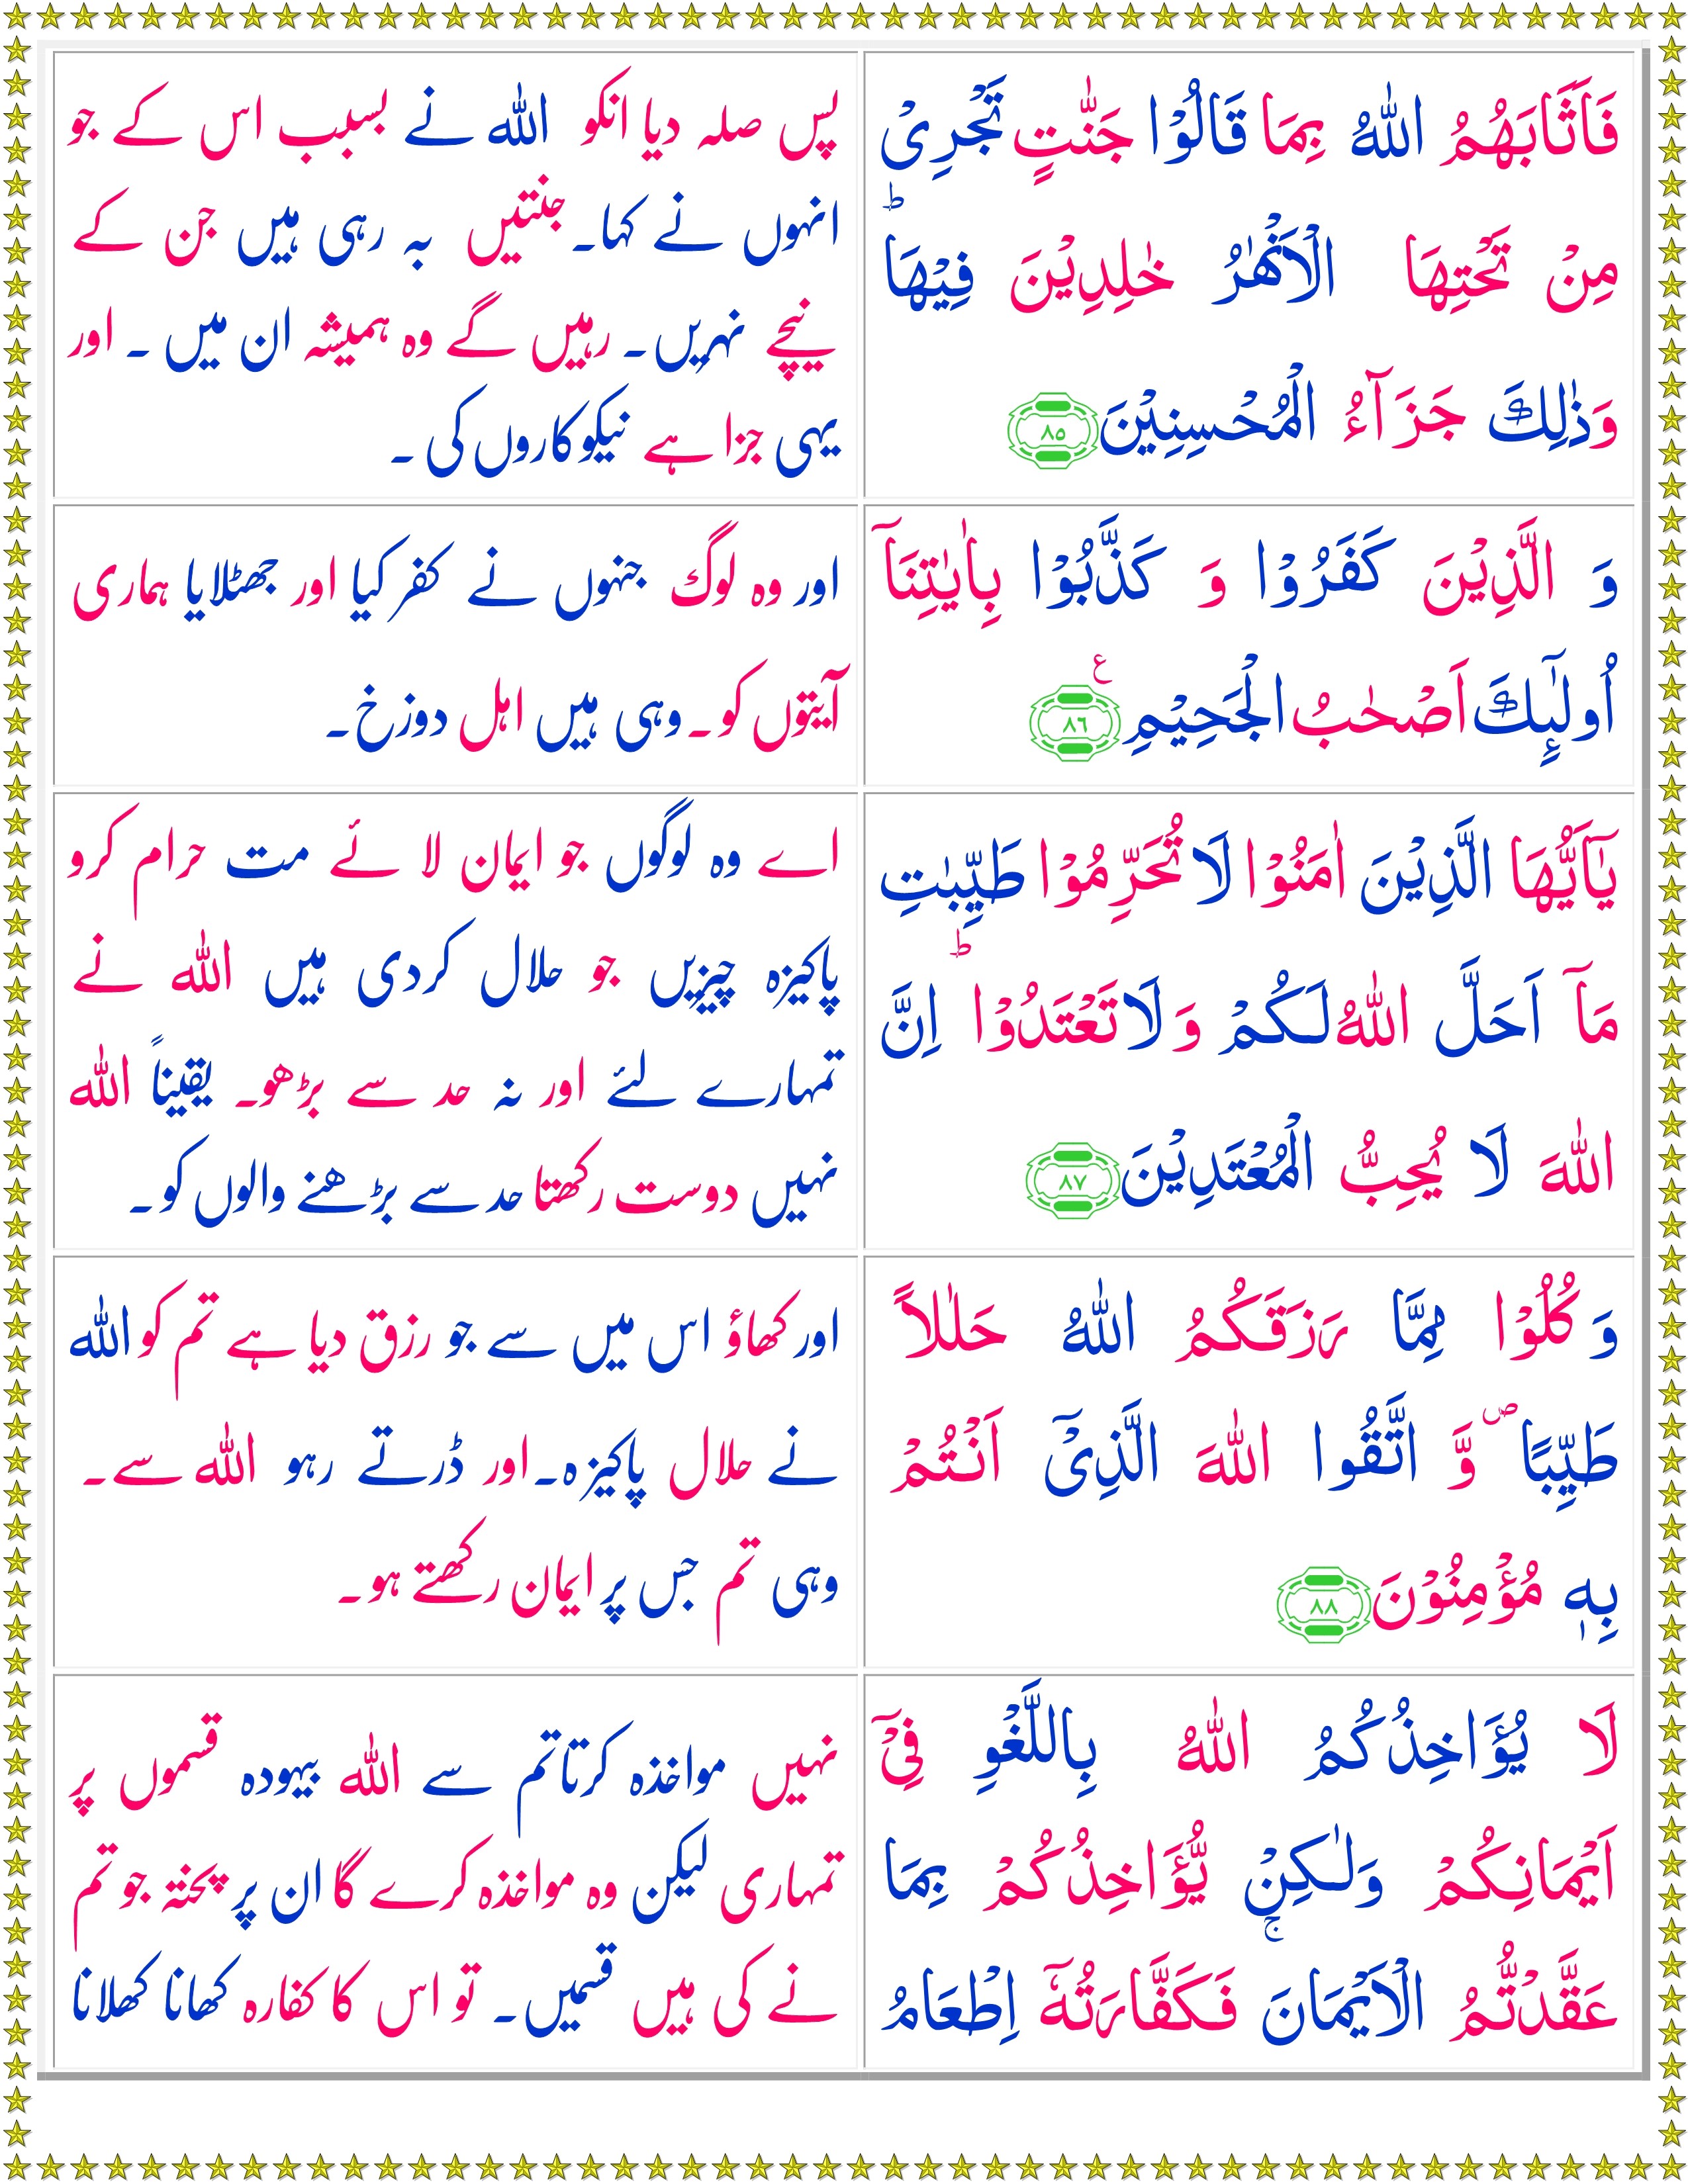 فَاَثَابَهُمُ اللّٰهُ بِمَا قَالُوْا جَنّٰتٍ تَجْرِىْ
مِنْ تَحْتِهَا الْاَنْهٰرُ خٰلِدِيْنَ فِيْهَا ؕ
وَذٰلِكَ جَزَآءُ الْمُحْسِنِيْنَ ﴿۸۵﴾
پس صلہ دیا انکو اللہ نے بسبب اس کے جو
انہوں نے کہا۔ جنتیں بہ رہی ہیں جن کے
نیچے نہریں۔ رہیں گے وہ ہمیشہ ان میں ۔ اور
یہی جزا ہے نیکوکاروں کی ۔
وَ الَّذِيْنَ كَفَرُوْا وَ كَذَّبُوْا بِاٰيٰتِنَاۤ
اُولٰٓٮِٕكَ اَصْحٰبُ الْجَحِيْمِ ﴿۸۶﴾ ع
اور وہ لوگ جنہوں نے کفر کیا اور جھٹلایا ہماری
آیتوں کو۔ وہی ہیں اہل دوزخ۔
يٰۤاَيُّهَا الَّذِيْنَ اٰمَنُوْا لَا تُحَرِّمُوْا طَيِّبٰتِ
مَاۤ اَحَلَّ اللّٰهُ لَـكُمْ وَ لَا تَعْتَدُوْا ؕ اِنَّ
اللّٰهَ لَا يُحِبُّ الْمُعْتَدِيْنَ ﴿۸۷﴾
اے وہ لوگوں جو ایمان لا ئے مت حرام کرو
پاکیزہ چیزیں جو حلال کردی ہیں اللہ نے
تمہارے لئے اور نہ حد سے بڑھو۔ یقیناً اللہ
نہیں دوست رکھتا حد سے بڑھنے والوں کو۔
وَ كُلُوْا مِمَّا رَزَقَكُمُ اللّٰهُ حَلٰلاً
طَيِّبًا ۖ وَّ اتَّقُوا اللّٰهَ الَّذِىْۤ اَنْـتُمْ
بِهٖ مُؤْمِنُوْنَ ﴿۸۸﴾
اور کھاؤ اس میں سے جو رزق دیا ہے تم کو اللہ
نے حلال پاکیزہ۔ اور ڈرتے رہو اللہ سے۔
وہی تم جس پر ایمان رکھتے ہو۔
لَا يُؤَاخِذُكُمُ اللّٰهُ بِاللَّغْوِ فِىْۤ
اَيْمَانِكُمْ وَلٰـكِنْ يُّؤَاخِذُكُمْ بِمَا
عَقَّدْتُّمُ الْاَيْمَانَ ۚ فَكَفَّارَتُهٗۤ اِطْعَامُ
نہیں مواخذہ کرتا تم سے اللہ بیہودہ قسموں پر
تمہاری لیکن وہ مواخذہ کرے گا ان پر پختہ جو تم
نے کی ہیں قسمیں۔ تو اس کا کفارہ کھانا کھلانا